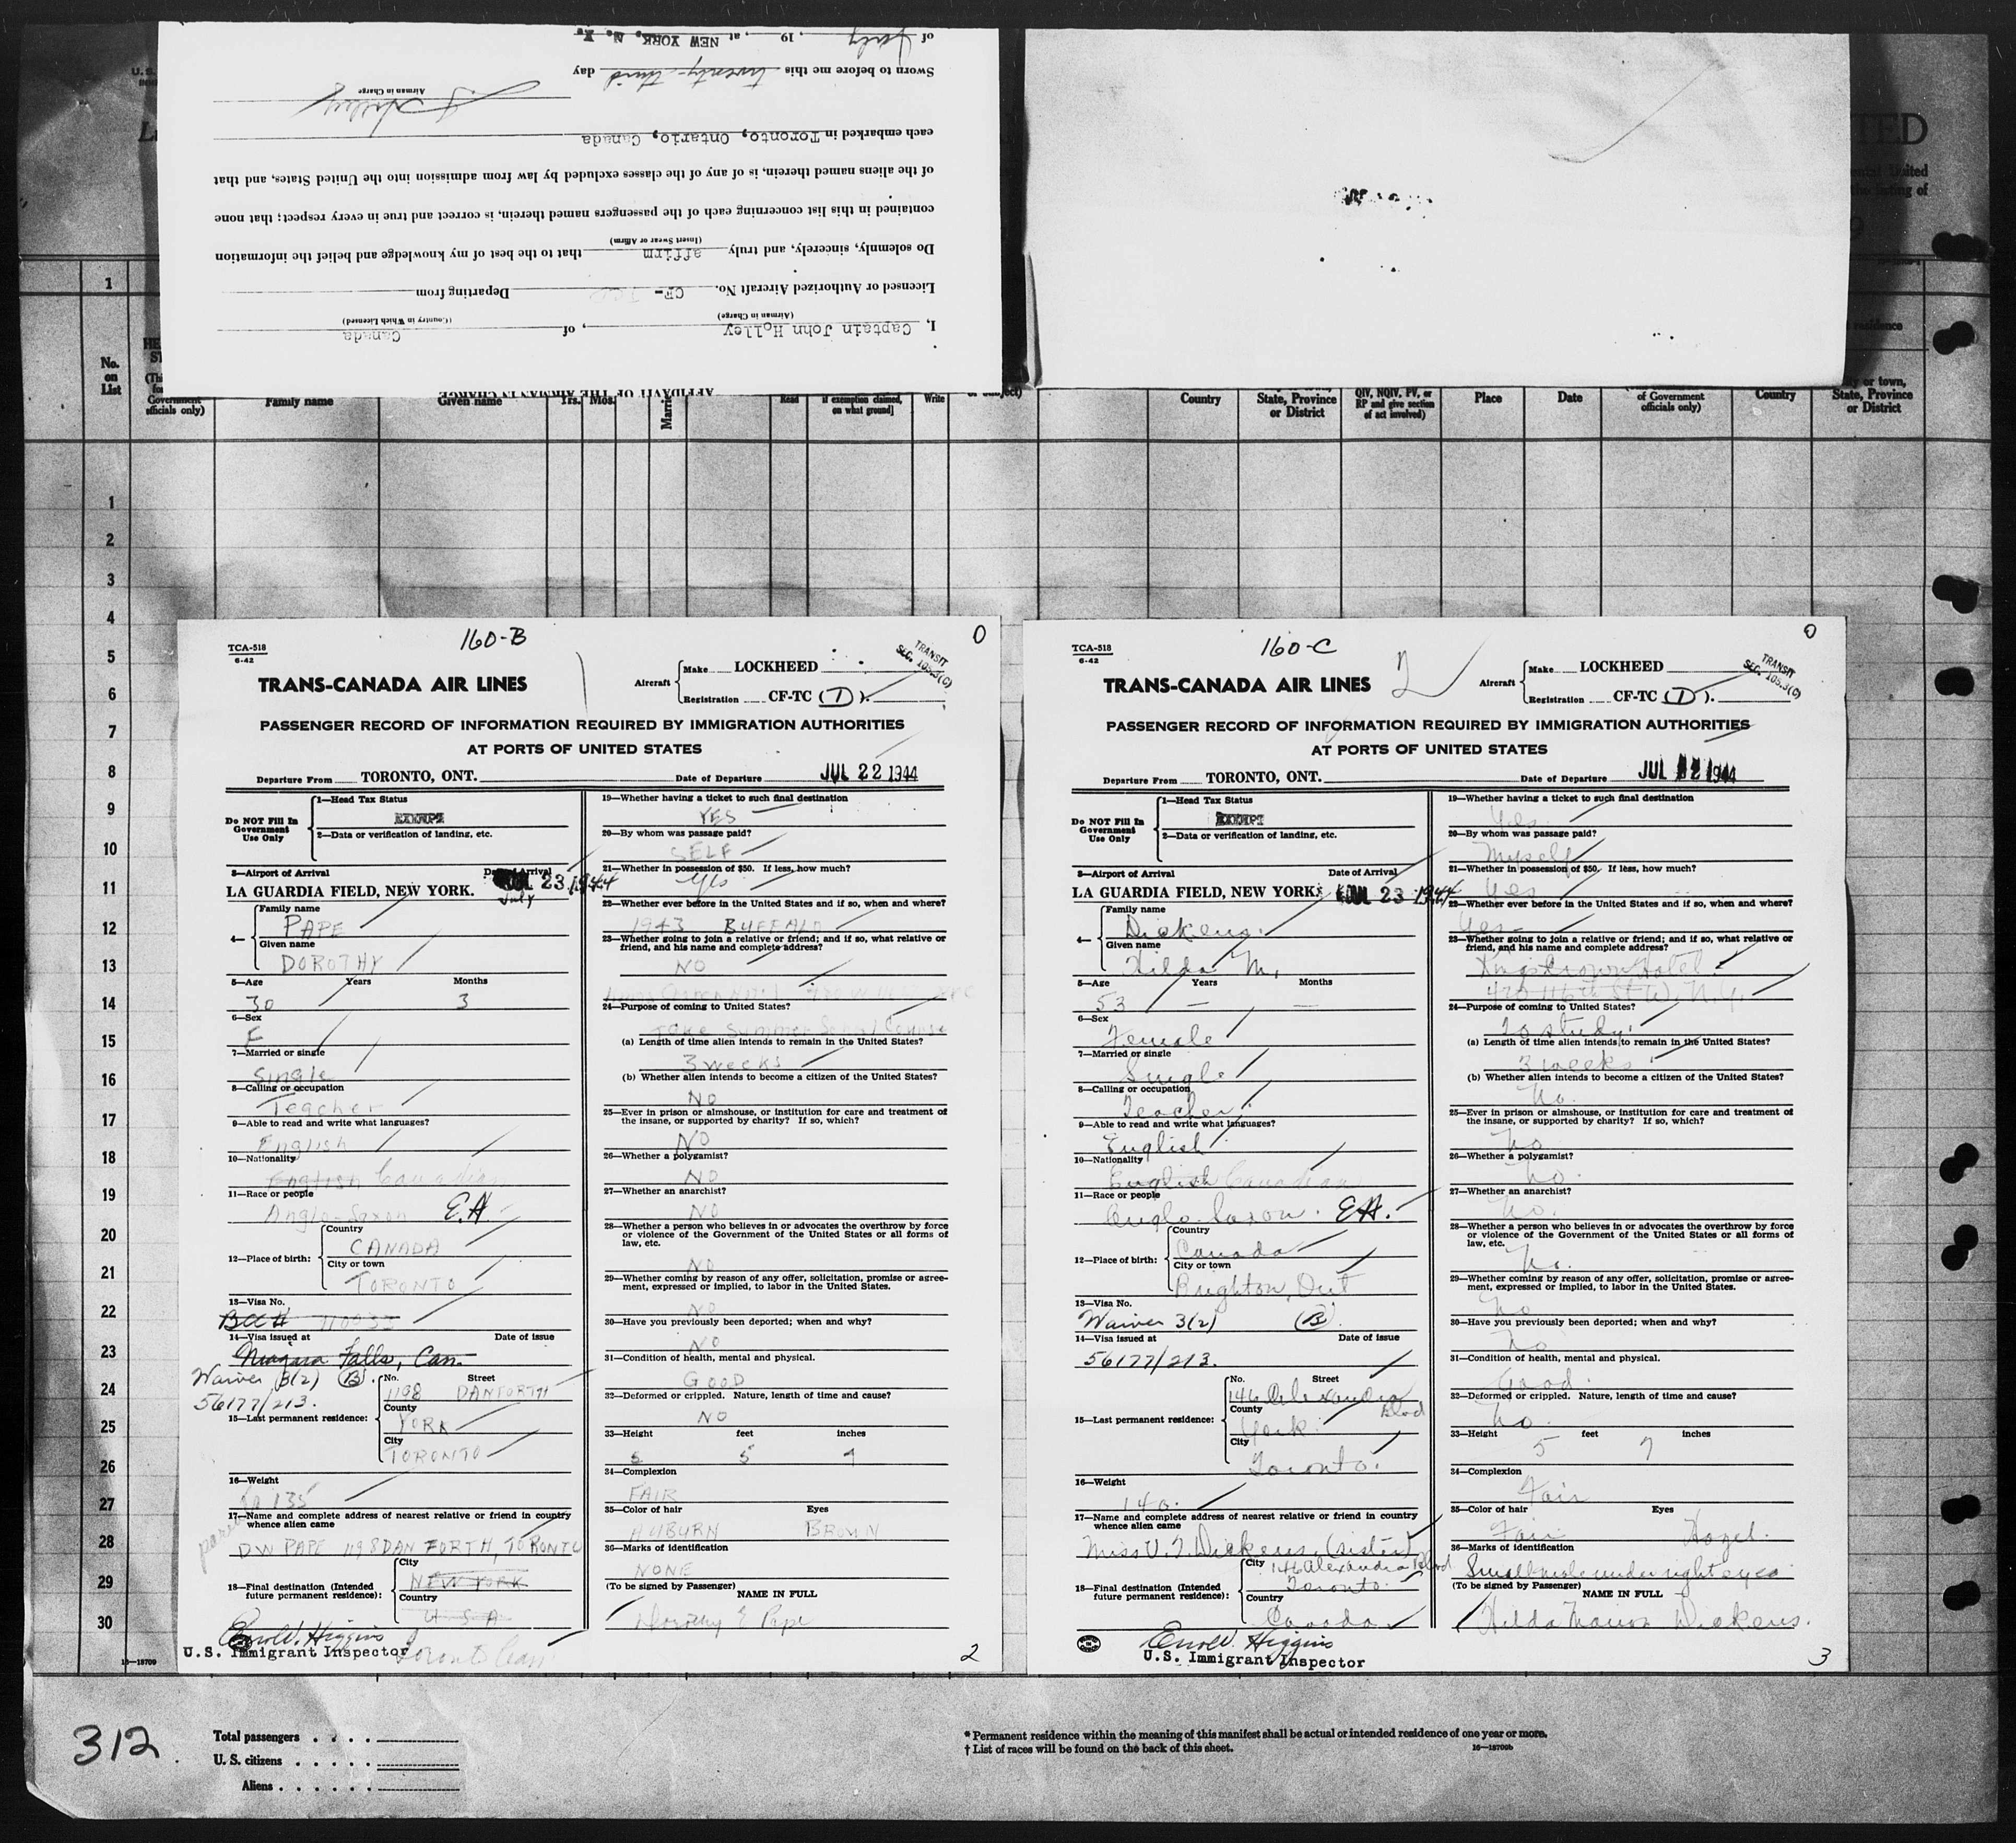 of July, 19 , at NEW YORK, N. Y.
Sworn to before me this twenty-third day
Airman in Charge
each embarked in Toronto, Ontario, Canada
of the aliens named therein, is of any of the classes excluded by law from admission into the United States, and that
contained in this list concerning each of the passengers named therein, is correct and true in every respect; that none
(Insert Swear or Affirm)
Do solemnly, sincerely, and truly affirm that to the best of my knowledge and belief the information
Licensed or Authorized Aircraft No. CF- Departing from
(Airman in Charge) (Country in Which Licensed)
I, Captain John Holley, of Canada
AFFIDAVIT OF THE AIRMAN IN CHARGE
1
No. on List
Government officials only)
Family name
Given name
Yrs. Mos.
Read
if exemption claimed, on what ground]
Write
Country
State, Province or District
QIV, NQIV, PV, or RP and give section of act involved)
Place
Date
of Government officials only)
Country
City or town, State, Province or District
1
2
3
4
5
6
7
8
9
10
11
12
13
14
15
16
17
18
19
20
21
22
23
24
25
26
27
28
29
30
TCA-518
6-42
160-B
0
TRANSIT
SEC. 105.3(C)
TRANS-CANADA AIR LINES
Aircraft
Make LOCKHEED
Registration CF-TC (T).
PASSENGER RECORD OF INFORMATION REQUIRED BY IMMIGRATION AUTHORITIES
AT PORTS OF UNITED STATES
Departure From TORONTO, ONT. Date of Departure JUL 22 1944
Do NOT Fill In Government Use Only
1—Head Tax Status
EXEMPT
2—Data or verification of landing, etc.
3—Airport of Arrival Date of Arrival
LA GUARDIA FIELD, NEW YORK. JUL 23 1944
July
4—
Family name
PAPE
Given name
DOROTHY
5—Age Years Months
30 3
6—Sex
F
7—Married or single
Single
8—Calling or occupation
Teacher
9—Able to read and write what languages?
English
10—Nationality
English Canadian
11—Race or people
Anglo-Saxon E.H.
12—Place of birth:
Country
CANADA
City or town
TORONTO
13—Visa No.
BCC # 110933
14—Visa issued at Date of issue
Niagara Falls, Can.
Waiver 3(2) (B).
56177/213.
15—Last permanent residence:
No. Street
1198 DANFORTH
County
YORK
City
TORONTO
16—Weight
135
17—Name and complete address of nearest relative or friend in country
whence alien came
DW PAPE 1198 DANFORTH, TORONTO
18—Final destination (Intended
future permanent residence):
City
NEW YORK
Country
U S A
Toronto Can
Errol V. Higgins
U.S. Immigrant Inspector
19—Whether having a ticket to such final destination
YES
20—By whom was passage paid?
SELF
21—Whether in possession of $50. If less, how much?
Yes
22—Whether ever before in the United States and if so, when and where?
1943 BUFFALO
23—Whether going to join a relative or friend; and if so, what relative or
friend, and his name and complete address?
NO
24—Purpose of coming to United States?
Take Summer School Course
(a) Length of time alien intends to remain in the United States?
3 weeks
(b) Whether alien intends to become a citizen of the United States?
NO
25—Ever in prison or almshouse, or institution for care and treatment of
the insane, or supported by charity? If so, which?
NO
26—Whether a polygamist?
NO
27—Whether an anarchist?
NO
28—Whether a person who believes in or advocates the overthrow by force
or violence of the Government of the United States or all forms of
law, etc.
NO
29—Whether coming by reason of any offer, solicitation, promise or agree-
ment, expressed or implied, to labor in the United States.
NO
30—Have you previously been deported; when and why?
NO
31—Condition of health, mental and physical.
GOOD
32—Deformed or crippled. Nature, length of time and cause?
NO
33—Height feet inches
5
34—Complexion
FAIR
35—Color of hair Eyes
AUBURN BROWN
36—Marks of identification
NONE
(To be signed by Passenger) NAME IN FULL
Dorothy E Pape
2
TCA-518
6-42
160-C
2
0
TRANSIT
SEC. 105.3(C)
TRANS-CANADA AIR LINES
Aircraft
Make LOCKHEED
Registration CF-TC (T).
PASSENGER RECORD OF INFORMATION REQUIRED BY IMMIGRATION AUTHORITIES
AT PORTS OF UNITED STATES
Departure From TORONTO, ONT. Date of Departure JUL 22 1944
Do NOT Fill In Government Use Only
1—Head Tax Status
EXEMPT
2—Data or verification of landing, etc.
3—Airport of Arrival Date of Arrival
LA GUARDIA FIELD, NEW YORK. JUL 23 1944
4—
Family name
Dickens.
Given name
Hilda M.
5—Age Years Months
53 — —
6—Sex
Female
7—Married or single
Single
8—Calling or occupation
Teacher.
9—Able to read and write what languages?
English
10—Nationality
English Canadian
11—Race or people
Anglo Saxon. EH.
12—Place of birth:
Country
Canada
City or town
Brighton, Ont
13—Visa No.
Waiver 3(2) (B).
14—Visa issued at Date of issue
56177/213.
15—Last permanent residence:
No. Street
146 Alexandra Blvd
County
York
City
Toronto.
16—Weight
140.
17—Name and complete address of nearest relative or friend in country
whence alien came
Miss V. I. Dickens. (sister)
146 Alexandra Blvd
18—Final destination (Intended
future permanent residence):
City
Toronto.
Country
Canada
Errol V. Higgins
U.S. Immigrant Inspector
19—Whether having a ticket to such final destination
Yes.
20—By whom was passage paid?
Myself
21—Whether in possession of $50. If less, how much?
Yes
22—Whether ever before in the United States and if so, when and where?
Yes—
23—Whether going to join a relative or friend; and if so, what relative or
friend, and his name and complete address?
Kings Crown Hotel
420 116th St W. N.Y.
24—Purpose of coming to United States?
To study.
(a) Length of time alien intends to remain in the United States?
3 weeks
(b) Whether alien intends to become a citizen of the United States?
No.
25—Ever in prison or almshouse, or institution for care and treatment of
the insane, or supported by charity? If so, which?
No
26—Whether a polygamist?
No.
27—Whether an anarchist?
No.
28—Whether a person who believes in or advocates the overthrow by force
or violence of the Government of the United States or all forms of
law, etc.
No.
29—Whether coming by reason of any offer, solicitation, promise or agree-
ment, expressed or implied, to labor in the United States.
No
30—Have you previously been deported; when and why?
No
31—Condition of health, mental and physical.
Good.
32—Deformed or crippled. Nature, length of time and cause?
No.
33—Height feet inches
5 7
34—Complexion
Fair
35—Color of hair Eyes
Fair Hazel.
36—Marks of identification
Small mole under right eye
(To be signed by Passenger) NAME IN FULL
Hilda Marion Dickens.
3
16—18709
312
Total passengers
U. S. citizens
Aliens
* Permanent residence within the meaning of this manifest shall be actual or intended residence of one year or more.
† List of races will be found on the back of this sheet.
16—18709b